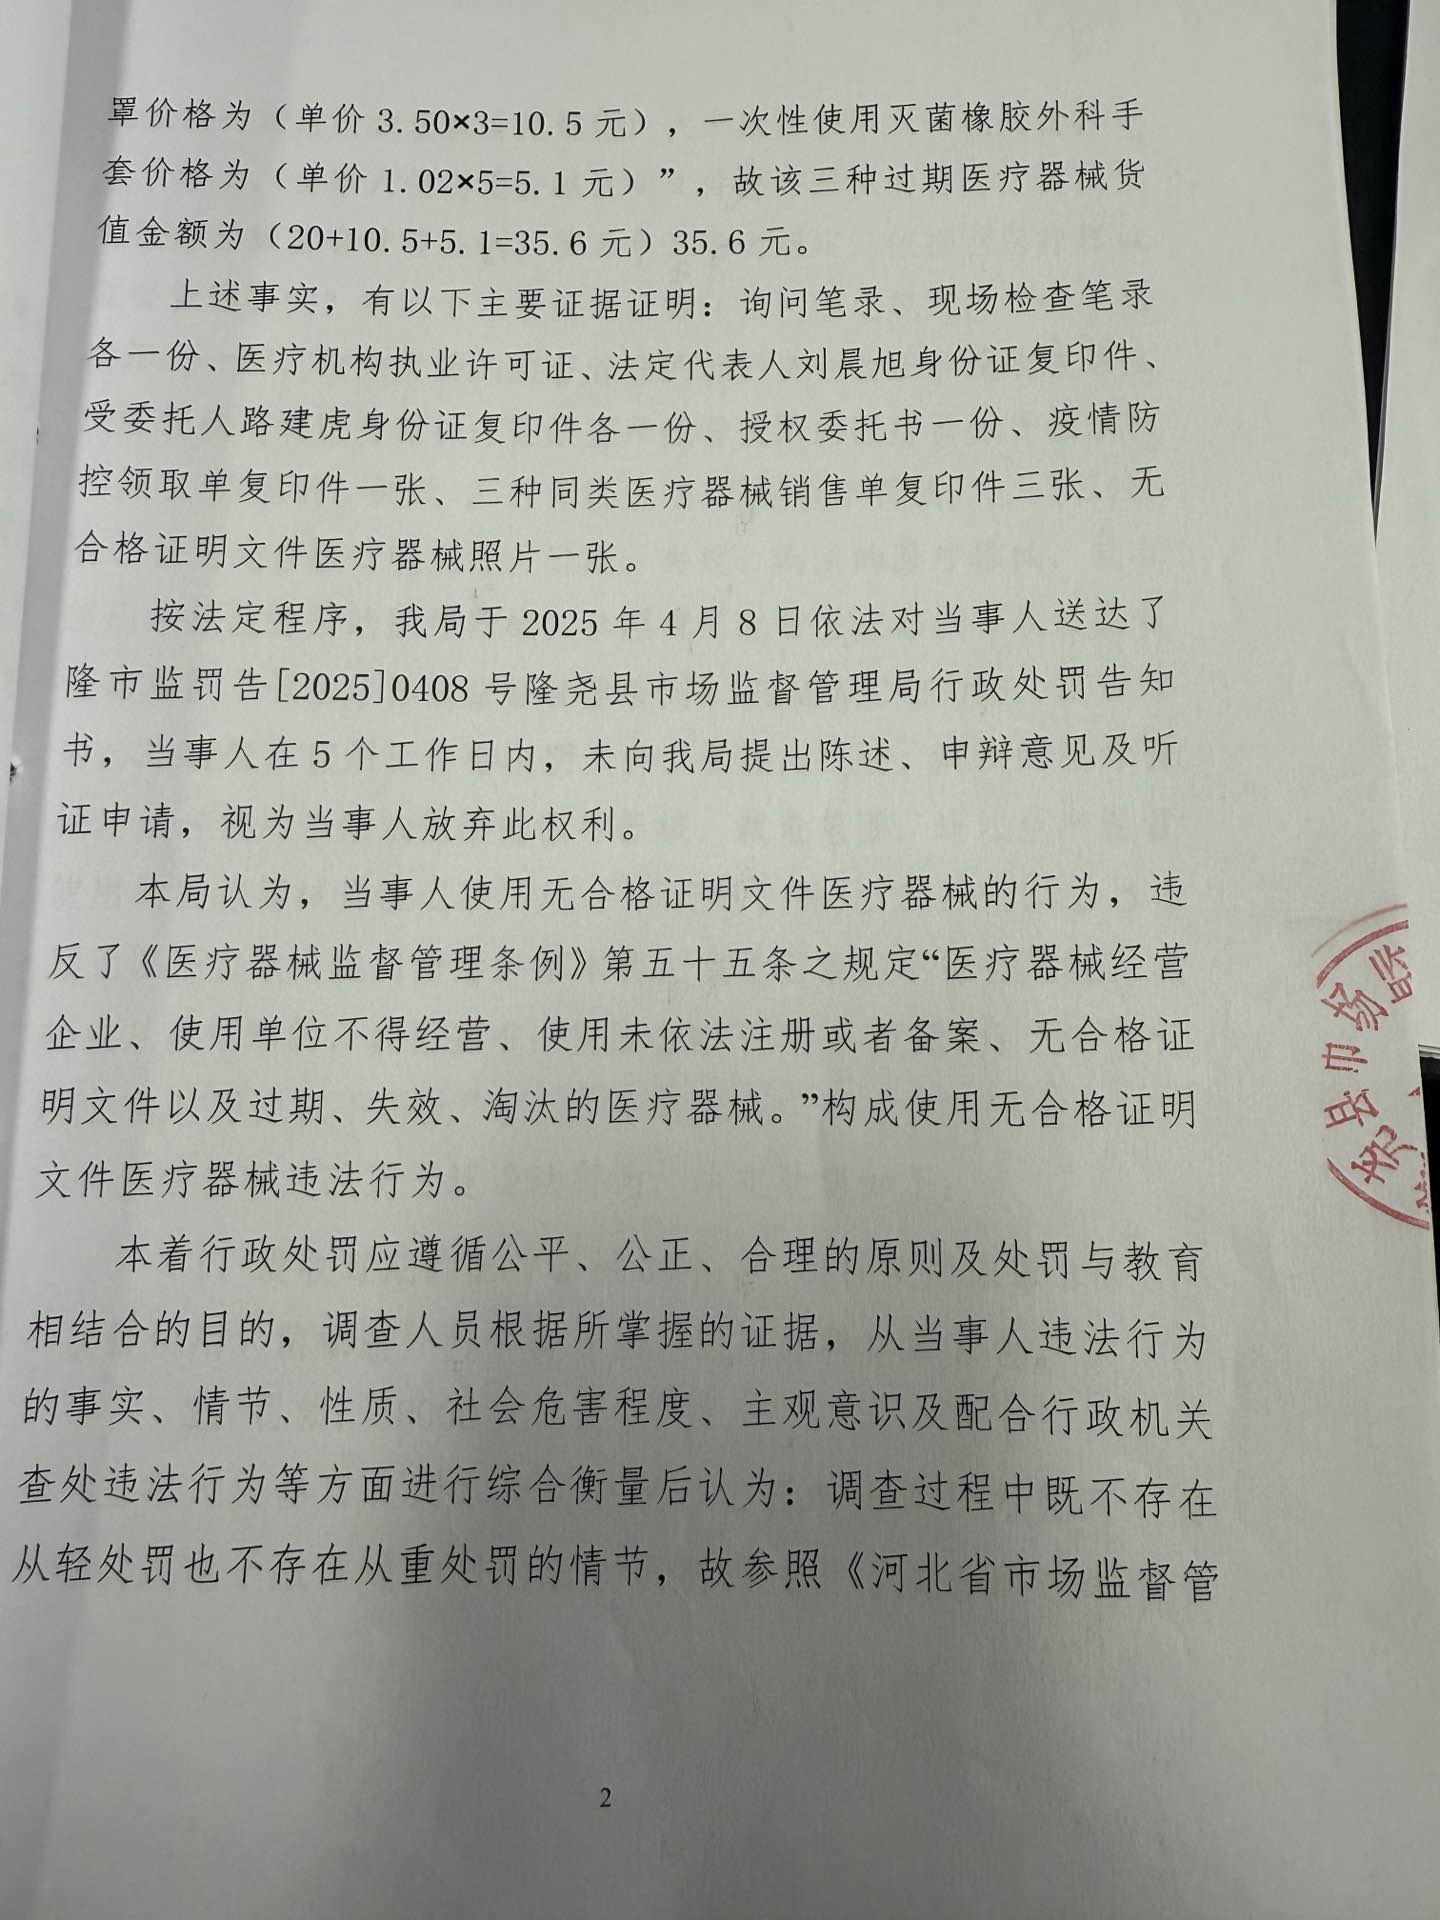 罩价格为（单价 3.50×3=10.5 元），一次性使用灭菌橡胶外科手
套价格为（单价 1.02×5=5.1 元）”，故该三种过期医疗器械货
值金额为（20+10.5+5.1=35.6 元）35.6 元。
上述事实，有以下主要证据证明：询问笔录、现场检查笔录
各一份、医疗机构执业许可证、法定代表人刘晨旭身份证复印件、
受委托人路建虎身份证复印件各一份、授权委托书一份、疫情防
控领取单复印件一张、三种同类医疗器械销售单复印件三张、无
合格证明文件医疗器械照片一张。
按法定程序，我局于 2025 年 4 月 8 日依法对当事人送达了
隆市监罚告[2025]0408 号隆尧县市场监督管理局行政处罚告知
书，当事人在 5 个工作日内，未向我局提出陈述、申辩意见及听
证申请，视为当事人放弃此权利。
本局认为，当事人使用无合格证明文件医疗器械的行为，违
反了《医疗器械监督管理条例》第五十五条之规定“医疗器械经营
企业、使用单位不得经营、使用未依法注册或者备案、无合格证
明文件以及过期、失效、淘汰的医疗器械。”构成使用无合格证明
文件医疗器械违法行为。
本着行政处罚应遵循公平、公正、合理的原则及处罚与教育
相结合的目的，调查人员根据所掌握的证据，从当事人违法行为
的事实、情节、性质、社会危害程度、主观意识及配合行政机关
查处违法行为等方面进行综合衡量后认为：调查过程中既不存在
从轻处罚也不存在从重处罚的情节，故参照《河北省市场监督管
2
尧县市场监